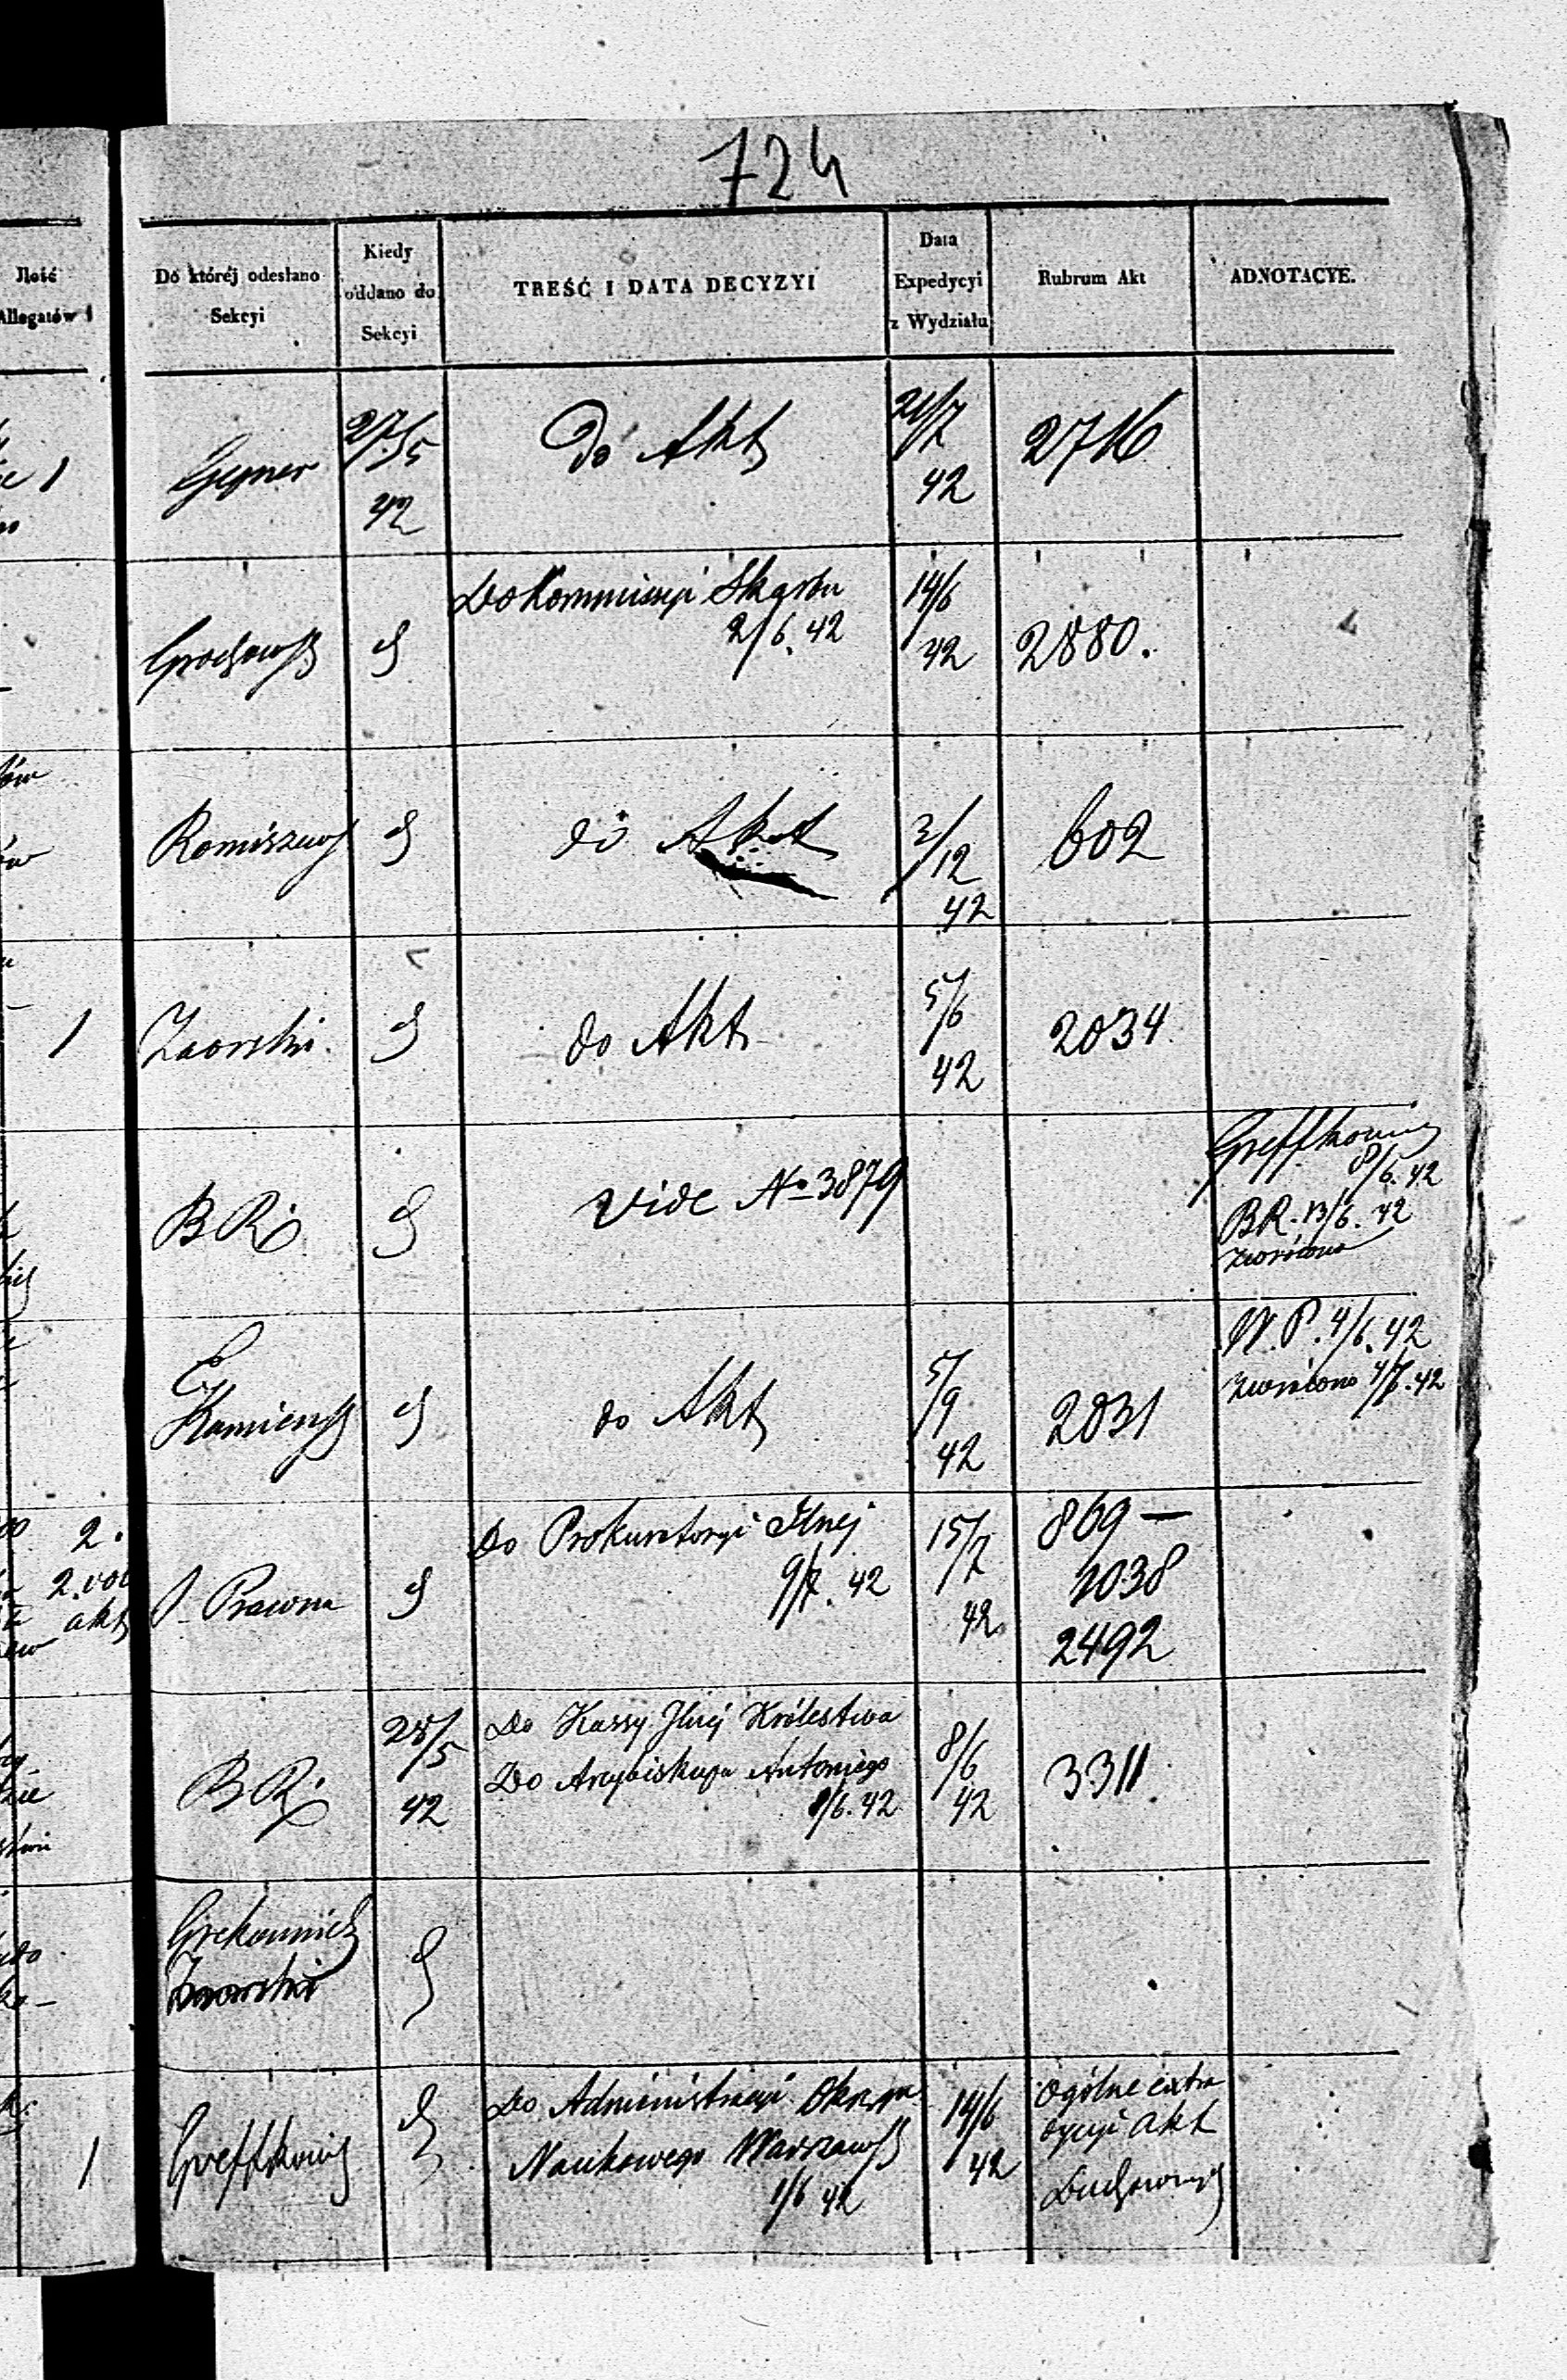 724
Ilość
Allegatów
Do któréj odesłano
Sekcyi
Kiedy
oddano do
Sekcyi
TREŚĆ I DATA DECYZYI
Data
Expedycyi
z Wydziału
Rubrum Akt
ADNOTACYE.
1
Gegner
27/5
42
Do Akt
21/7
42
2716
Do Kommissyi Skarbu
2/6. 42
14/6
42
2880.
do Akt
3/12
42
602
1
Zaorski.
do Akt
5/6
42
2034
BR
Vide No 3879
Greffkowicz
8/6. 42
BR. 13/6. 42
zwrócono
Kamieński
do Akt
5/9
42
2031
W. P. 4/6. 42
zwrócono 4/7. 42
2.
2.vol
akt
S. Prawna
Do Prokuratoryi Jlnej
9/7. 42
15/7
42
869 —
1038
2492
BR
28/5
42
Do Kassy Jlnej Królestwa
Do Arcybiskupa Antoniego
8/6. 42
8/6
42
3311
Zaorski
1
Greffkowicz
Do Administracyi Okręgu
Naukowego Warszaws
1/6 42
14/6
42
Ogólne extra
akt
Duchownych